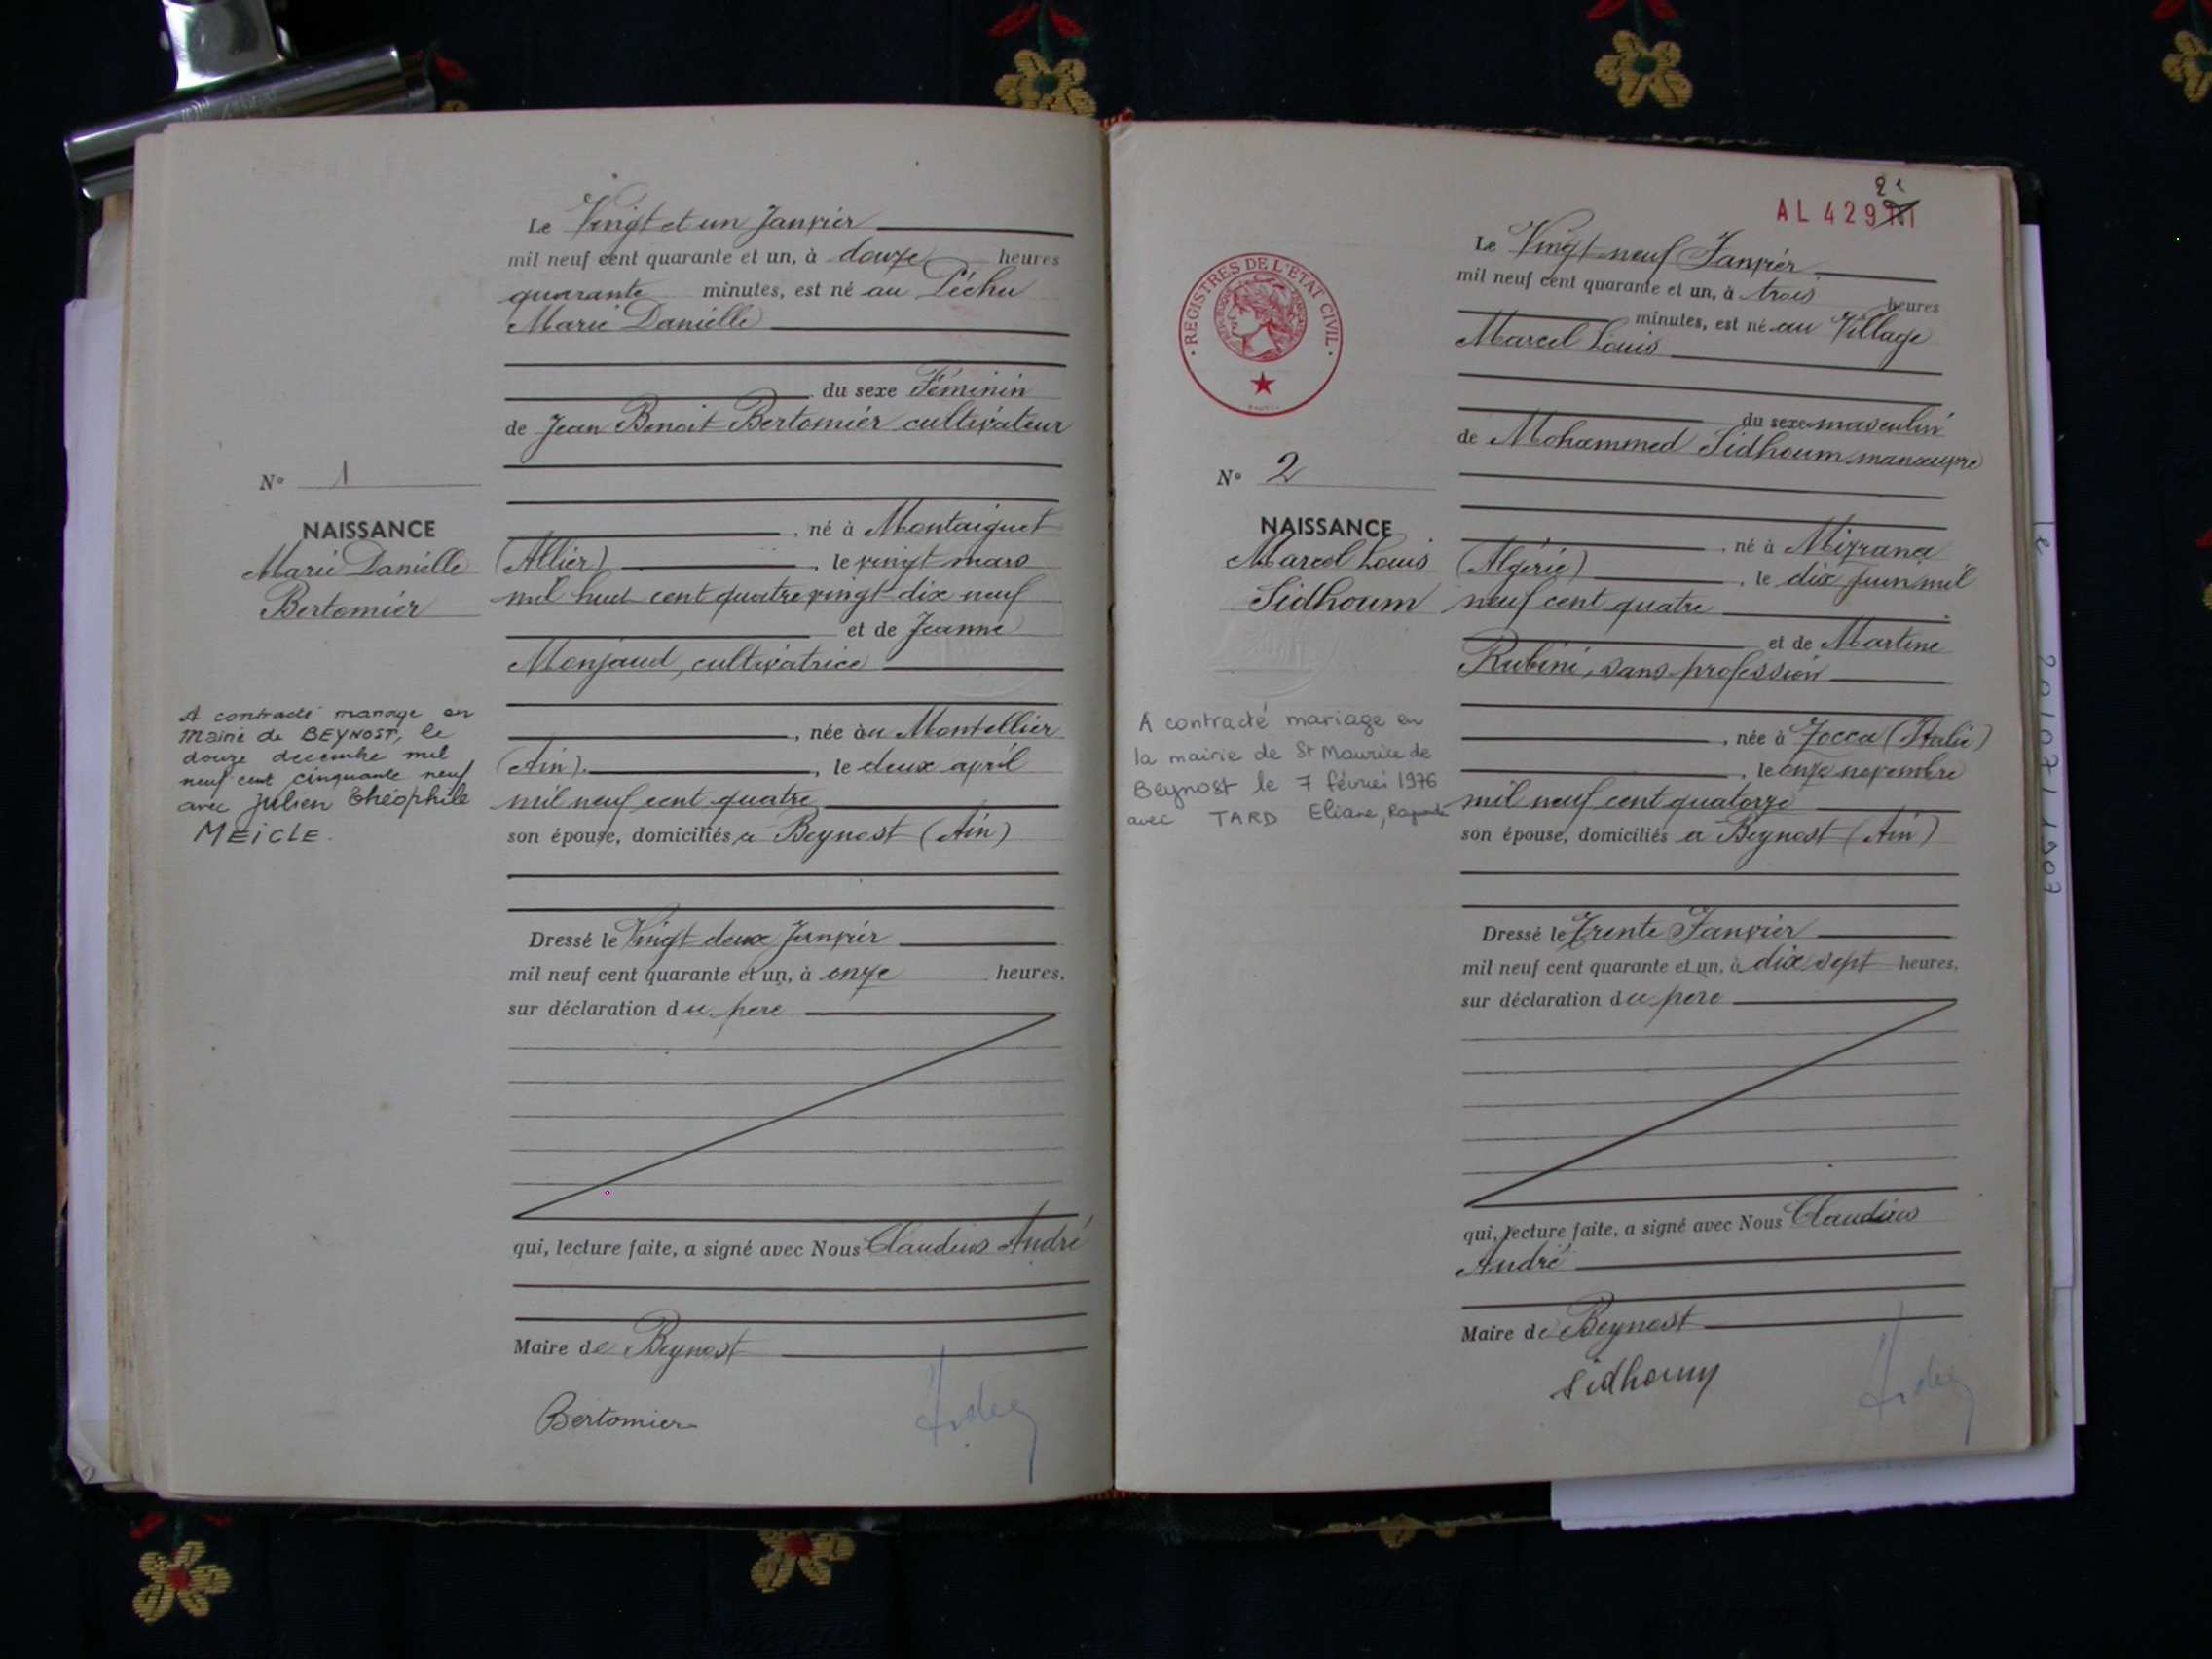 Le Vingt et un Janvier
mil neuf cent quarante et un, à douze heures
quarante minutes, est né au Péchu
Marie Danielle
du sexe Féminin
de Jean Benoit Bertomier cultivateur
N° 1
NAISSANCE
Marie Danielle
Bertomier
, né à Montaiguet
(Allier) , le vingt mars
mil huit cent quatre vingt dix neuf
et de Jeanne
Monjaud, cultivatrice
, née au Montellier
(Ain) , le deux avril
mil neuf cent quatre
son épouse, domiciliés à Beynost (Ain)
A contracté mariage en
Mairie de BEYNOST, le
douze decembre mil
neuf cent cinquante neuf
avec Julien Théophile
MEICLE.
Dressé le Vingt deux Janvier
mil neuf cent quarante et un, à onze heures,
sur déclaration du père
qui, lecture faite, a signé avec Nous Claudius André
Maire de Beynost
Bertomier
AL 429
REGISTRES DE L'ÉTAT CIVIL
Le Vingt neuf Janvier
mil neuf cent quarante et un, à trois heures
minutes, est né au Village
Marcel Louis
du sexe masculin
de Mohammed Sidhoum manœuvre
N° 2
NAISSANCE
Marcel Louis
Sidhoum
, né à Mizrana
(Algérie) , le dix Juin mil
neuf cent quatre
et de Martine
Rubini, sans profession
, née à Zocca (Italie)
, le onze novembre
mil neuf cent quatorze
son épouse, domiciliés à Beynost (Ain)
A contracté mariage en
la mairie de St Maurice de
Beynost le 7 février 1976
avec TARD Eliane,
Dressé le Trente Janvier
mil neuf cent quarante et un, à dix sept heures,
sur déclaration du père
qui, lecture faite, a signé avec Nous Claudius
André
Maire de Beynost
Sidhoum